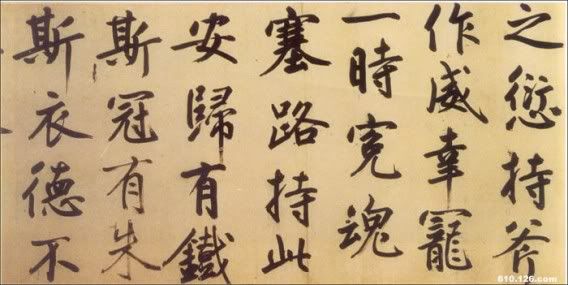 之愆持斧
作威幸寵
一時寃魂
塞路持此
安歸有鐵
斯冠有朱
斯衣德不
810.126.com